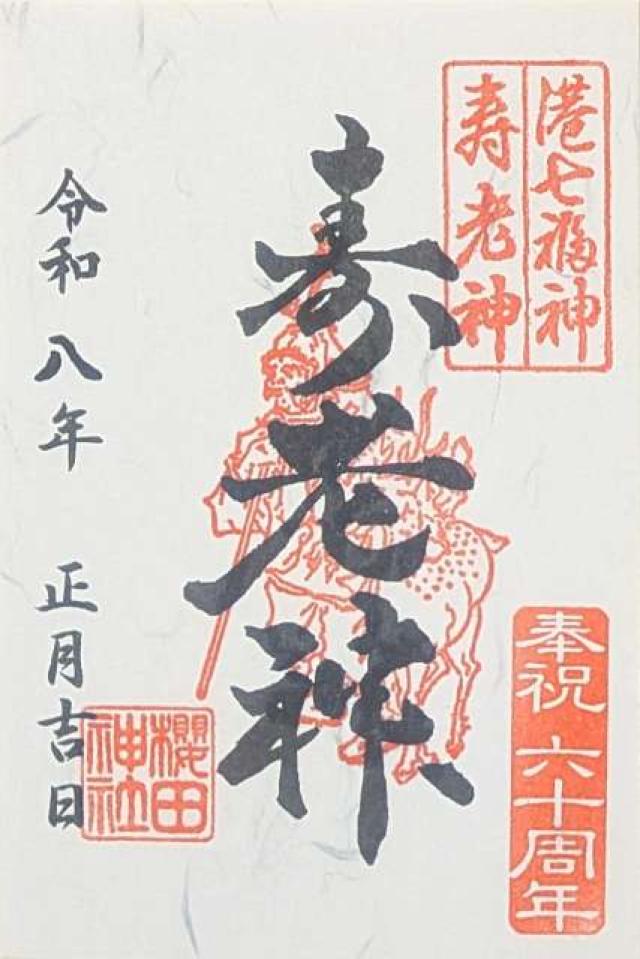 港七福神
寿老神
寿老神
奉祝 六十周年
令和八年 正月吉日
櫻田
神社